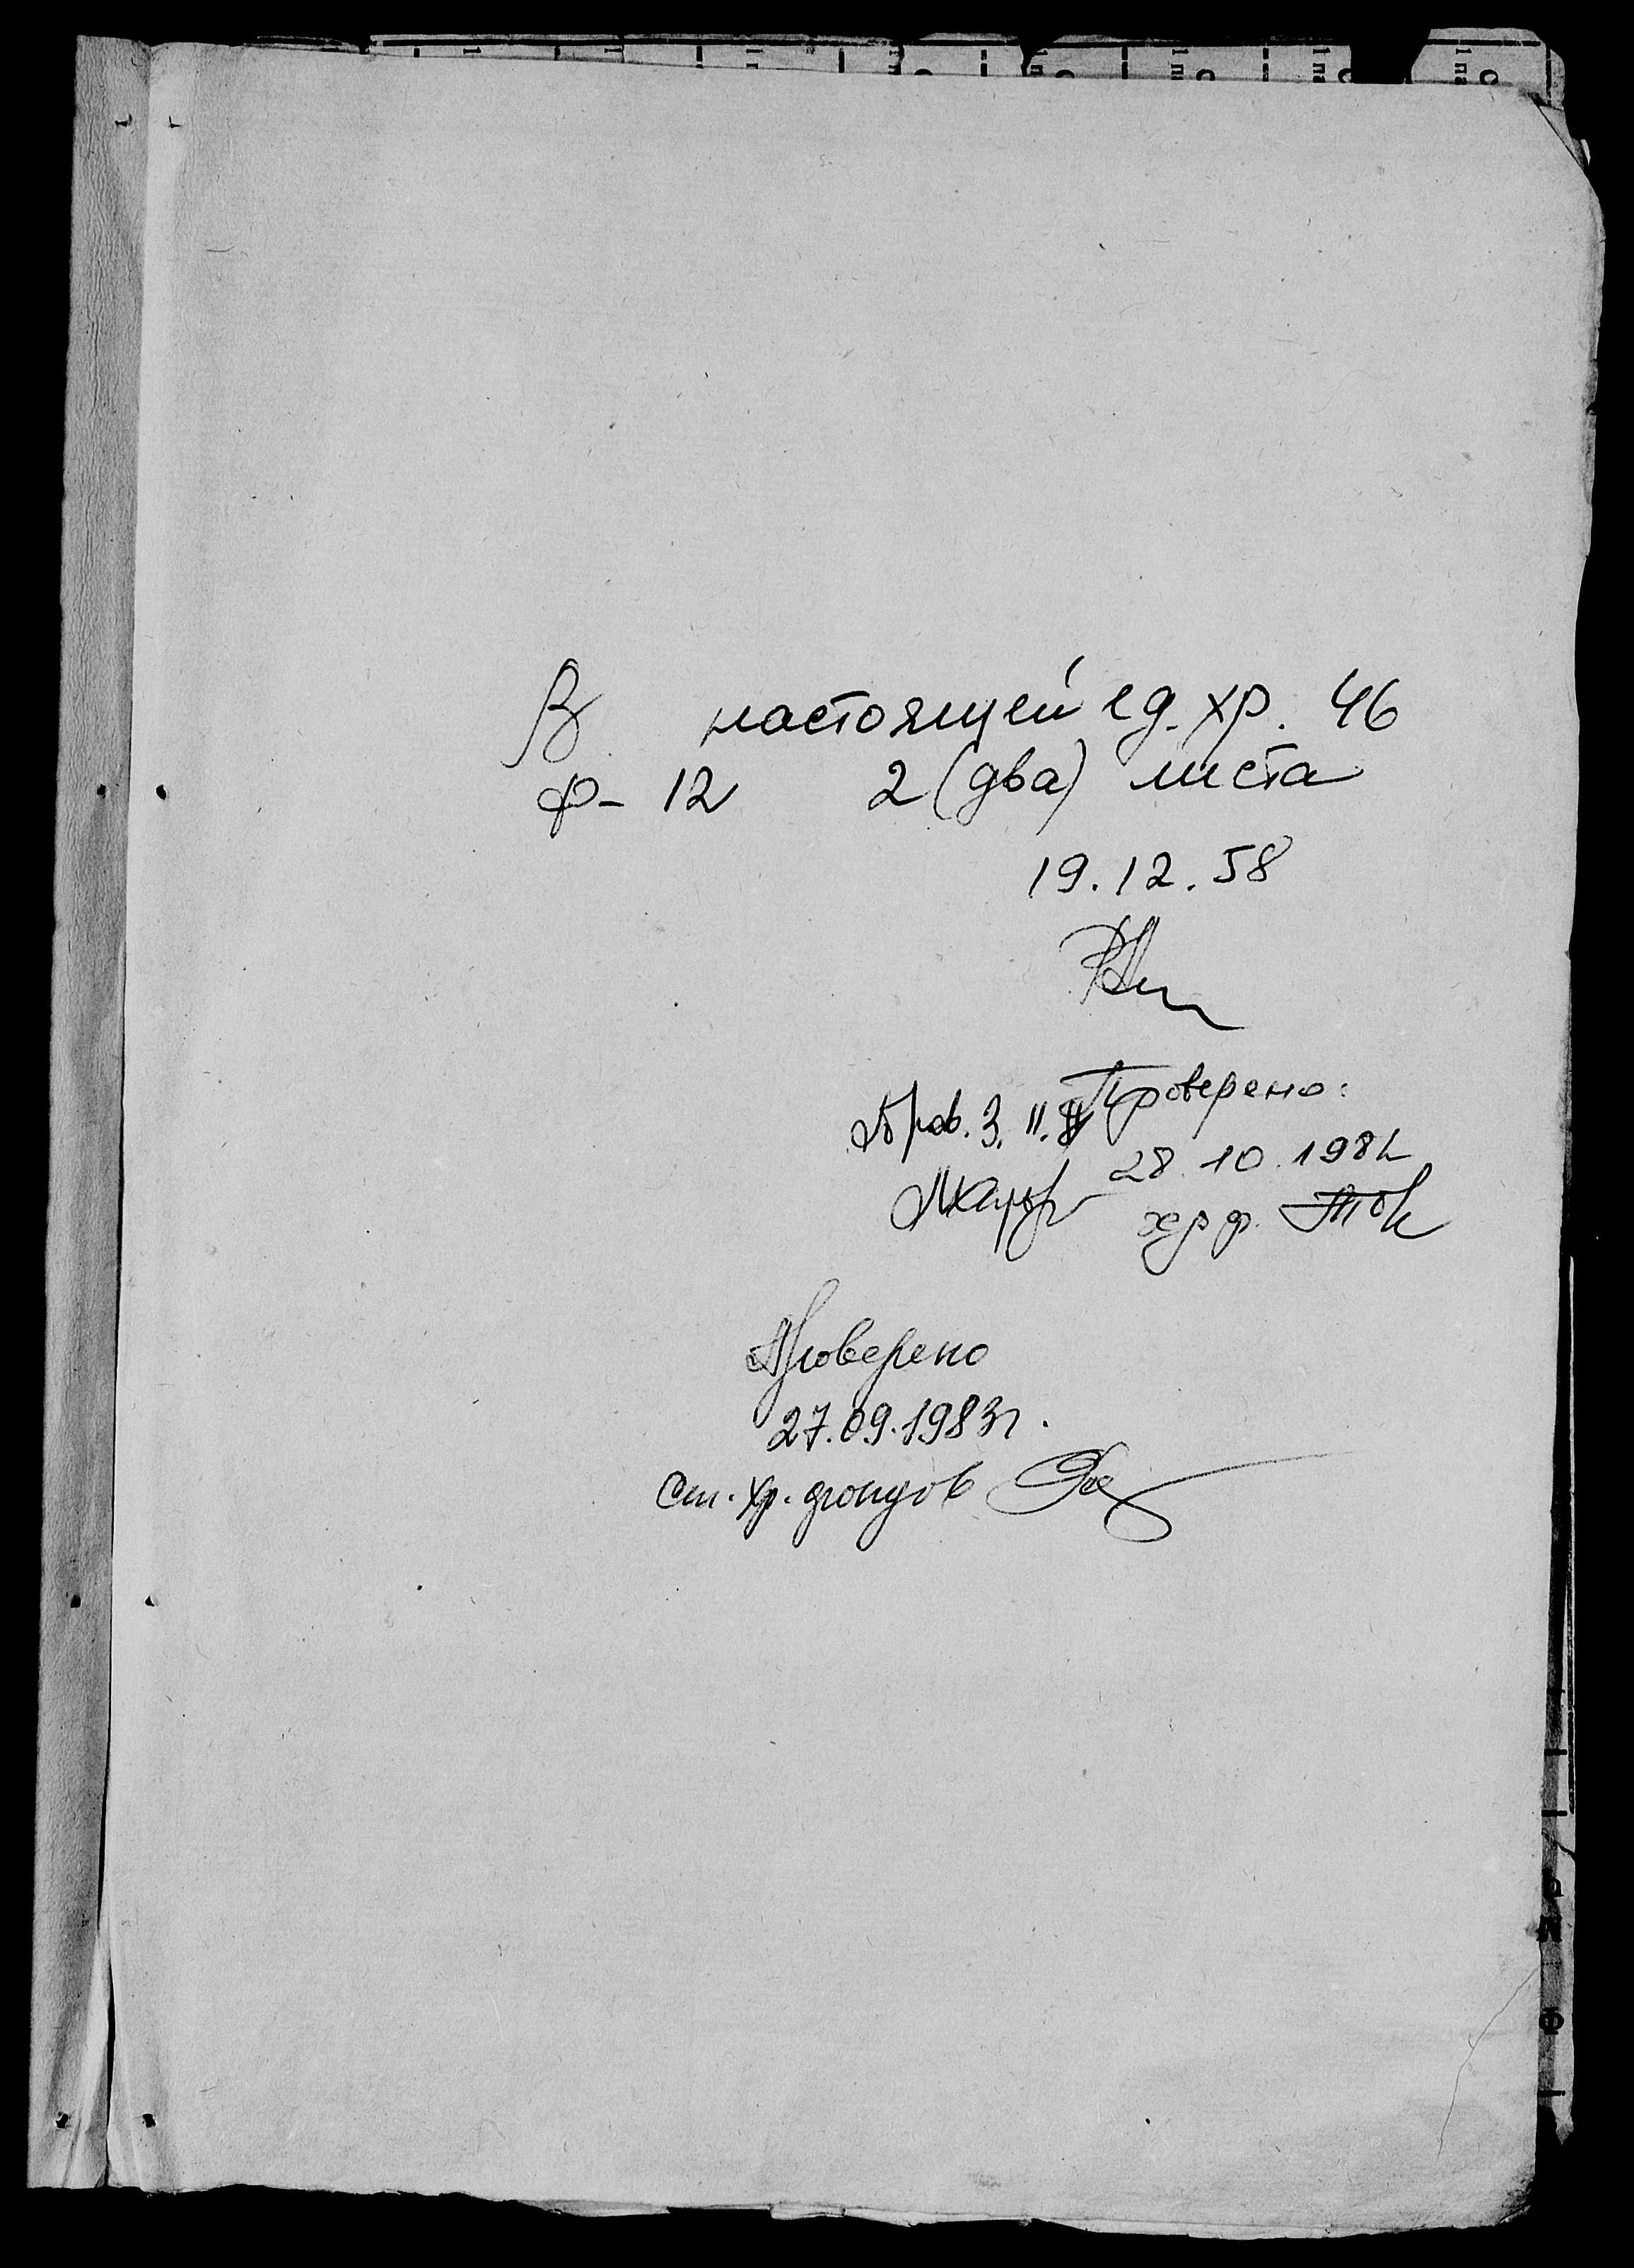 В настоящей ед. хр. 46
ф- 12 2 (два) листа
19.12.58
Пров. 3. II.
Проверено:
28.10.1982
хр ф.
Проверено
27.09.1983г.
Ст. хр. фондов